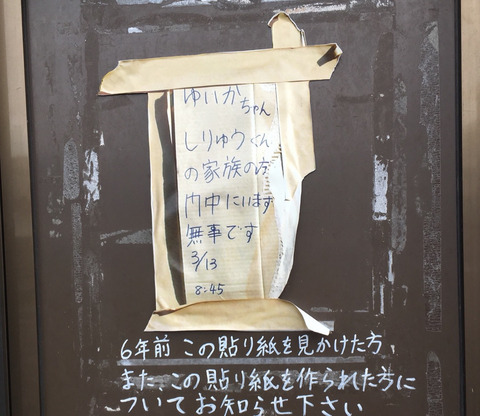 ゆいかちゃん
しりゅうくん
の家族の方
内中にいます
無事です
3/13
8:45
6年前 この貼り紙を見かけた方
また この貼り紙を作られた方に
ついてお知らせ下さい